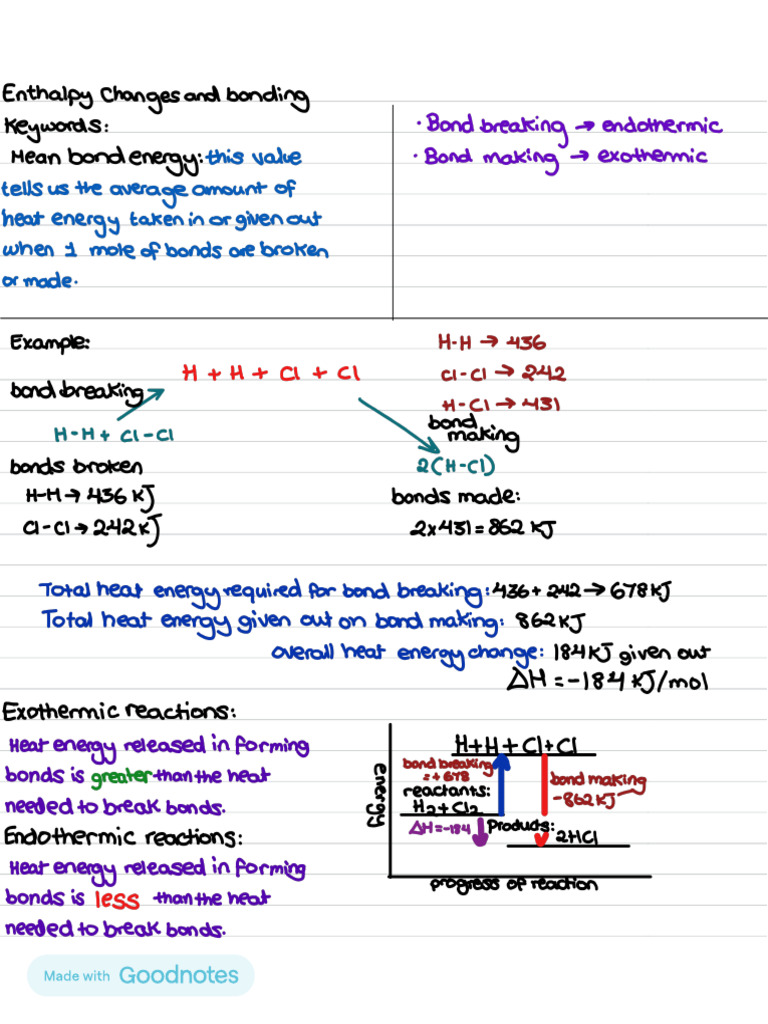 Enthalpy Changes and bonding
Keywords:
Mean bond energy: this value
tells us the average amount of
heat energy taken in or given out
when 1 mole of bonds are broken
or made.
· Bond breaking → endothermic
· Bond making → exothermic
Example:
H-H → 436
Cl-Cl → 242
H-Cl → 431
H + H + Cl + Cl
bond breaking
bond
making
H-H + Cl-Cl
2(H-Cl)
bonds broken
H-H → 436 kJ
Cl-Cl → 242 kJ
bonds made:
2x431 = 862 KJ
Total heat energy required for bond breaking: 436 + 242 → 678 KJ
Total heat energy given out on bond making: 862 KJ
overall heat energy change: 184 KJ given out
ΔH = -184 KJ/mol
Exothermic reactions:
Heat energy released in forming
bonds is greater than the heat
needed to break bonds.
Endothermic reactions:
Heat energy released in forming
bonds is less than the heat
needed to break bonds.
energy
H+H + Cl+Cl
bond breaking
= + 678
reactants:
H2 + Cl2
ΔH = -184
bond making
-862KJ
Products:
2HCl
progress of reaction
Made with Goodnotes